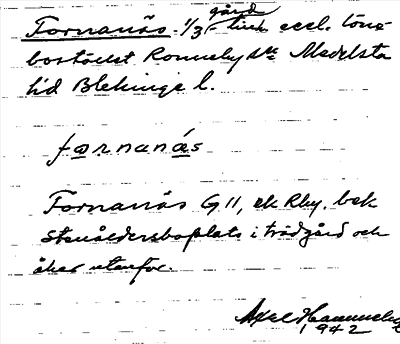 gård
Tornanäs. 1/3 eccl. löne
bostället Ronneby sn Medelsta
hd Blekinge l.
fornanäs
Tornanäs G11, ek Rby. bek
Stenåldersboplats i trädgård och
åker utanför.
Axel
1942